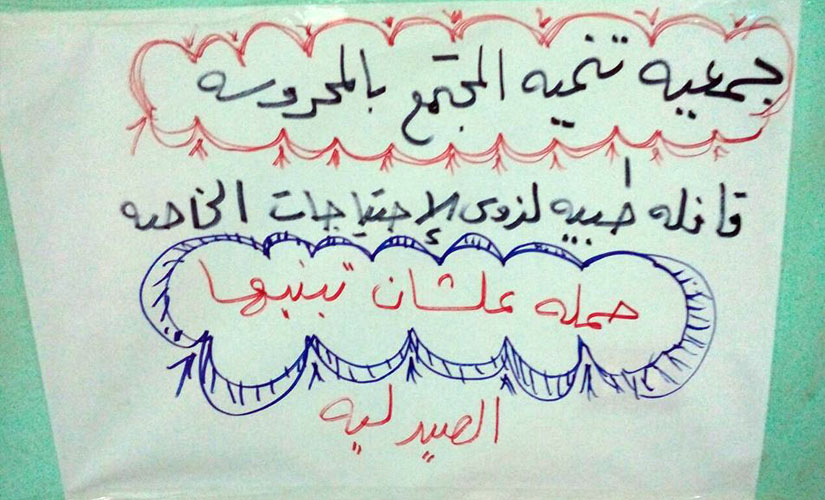 جمعيه تنميه المجتمع بالمحروسه
قافله طبيه لزوى الإحتياجات الخاصه
حمله علشان تبنيها
الصيدليه